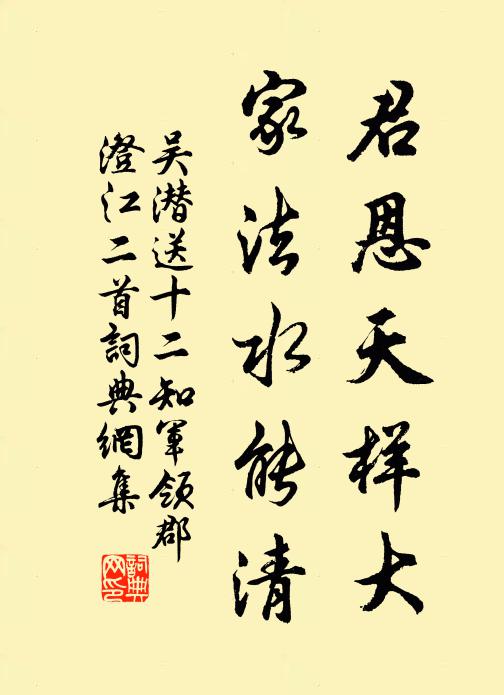 君恩天样大
家法水能清
吴潜送十二知军领郡
澄江二首詞典網集
詞典
网印